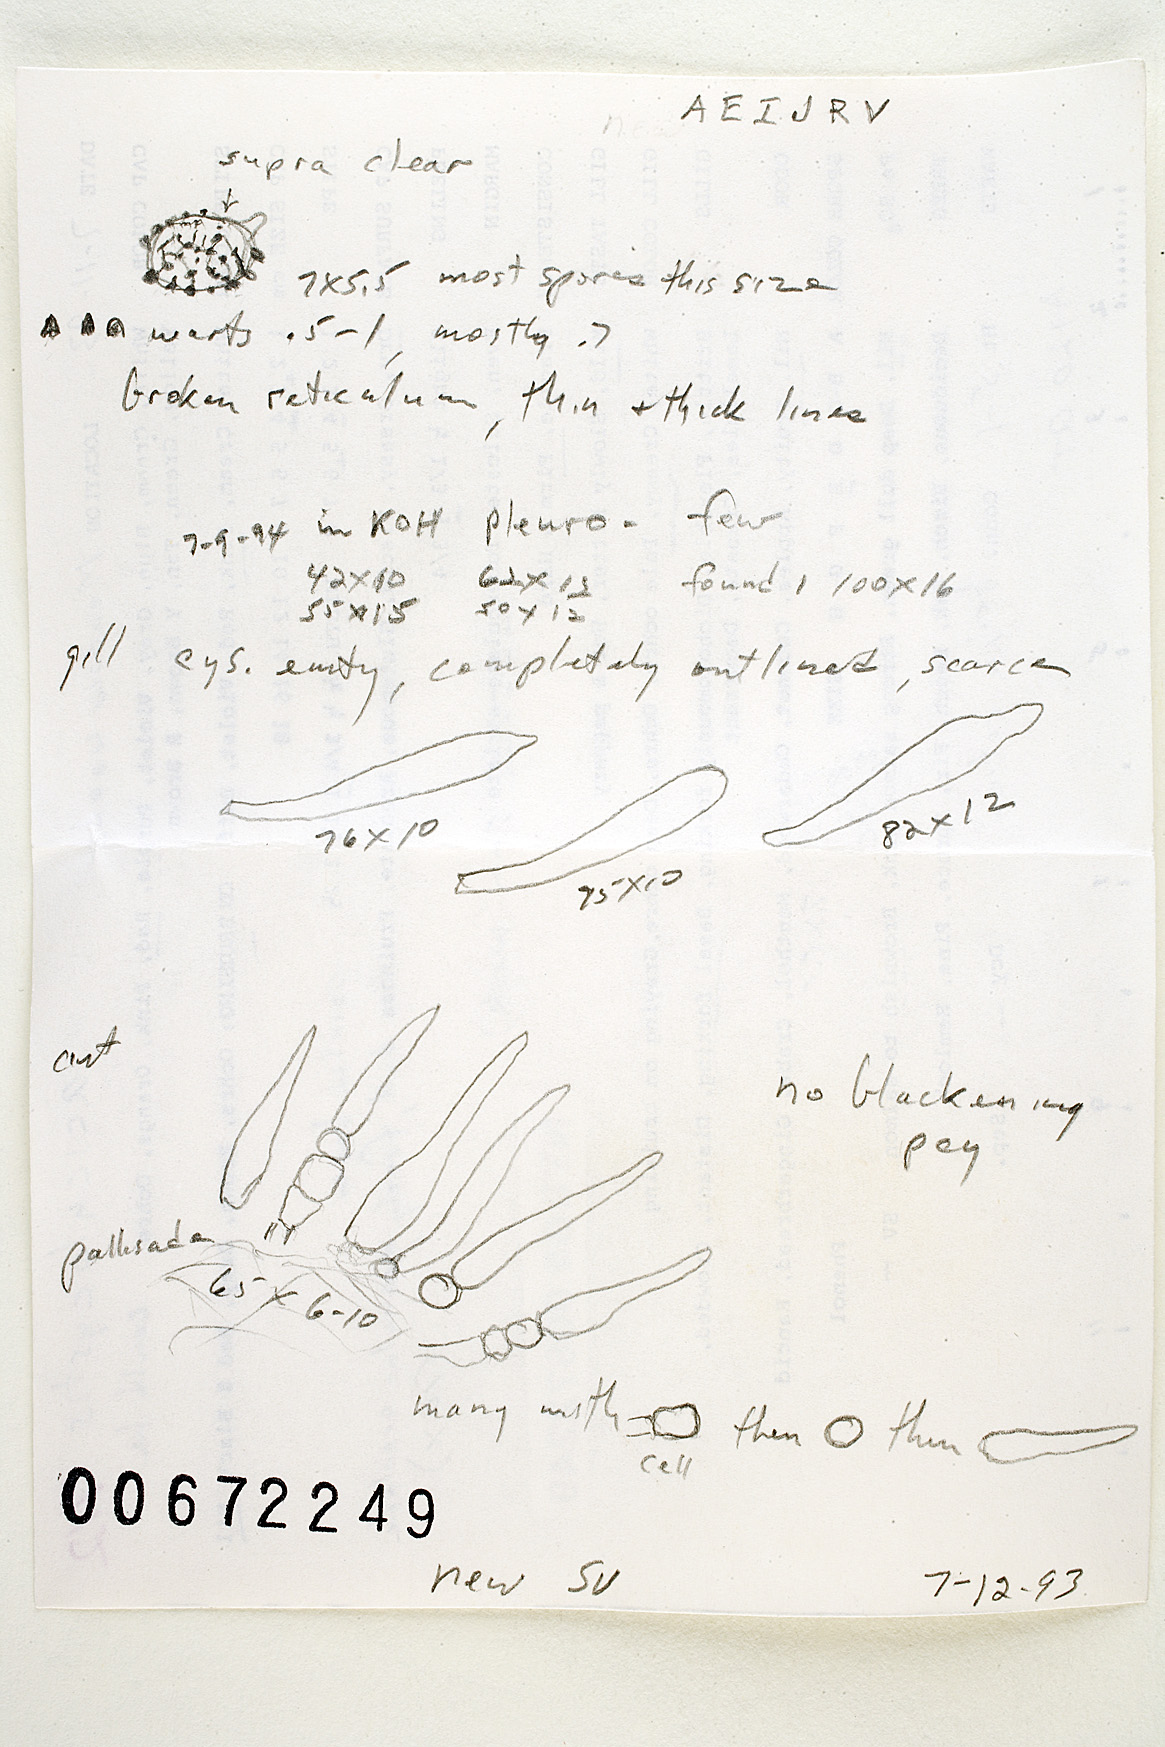 AEIJRV
supra clear
7X5.5 most spores this size
warts .5-1, mostly .7
broken reticulum, thin + thick lines
7-9-94 in KOH pleuro- few
42X10 62X12 found 1 100X16
55X15 50X12
gill cys. emty, completely outlined, scarce
76X10
75X10
82X12
cut
no blackening
pey
pallisade
65 X 6-10
many with then then
cell
00672249
new SV 7-12-93